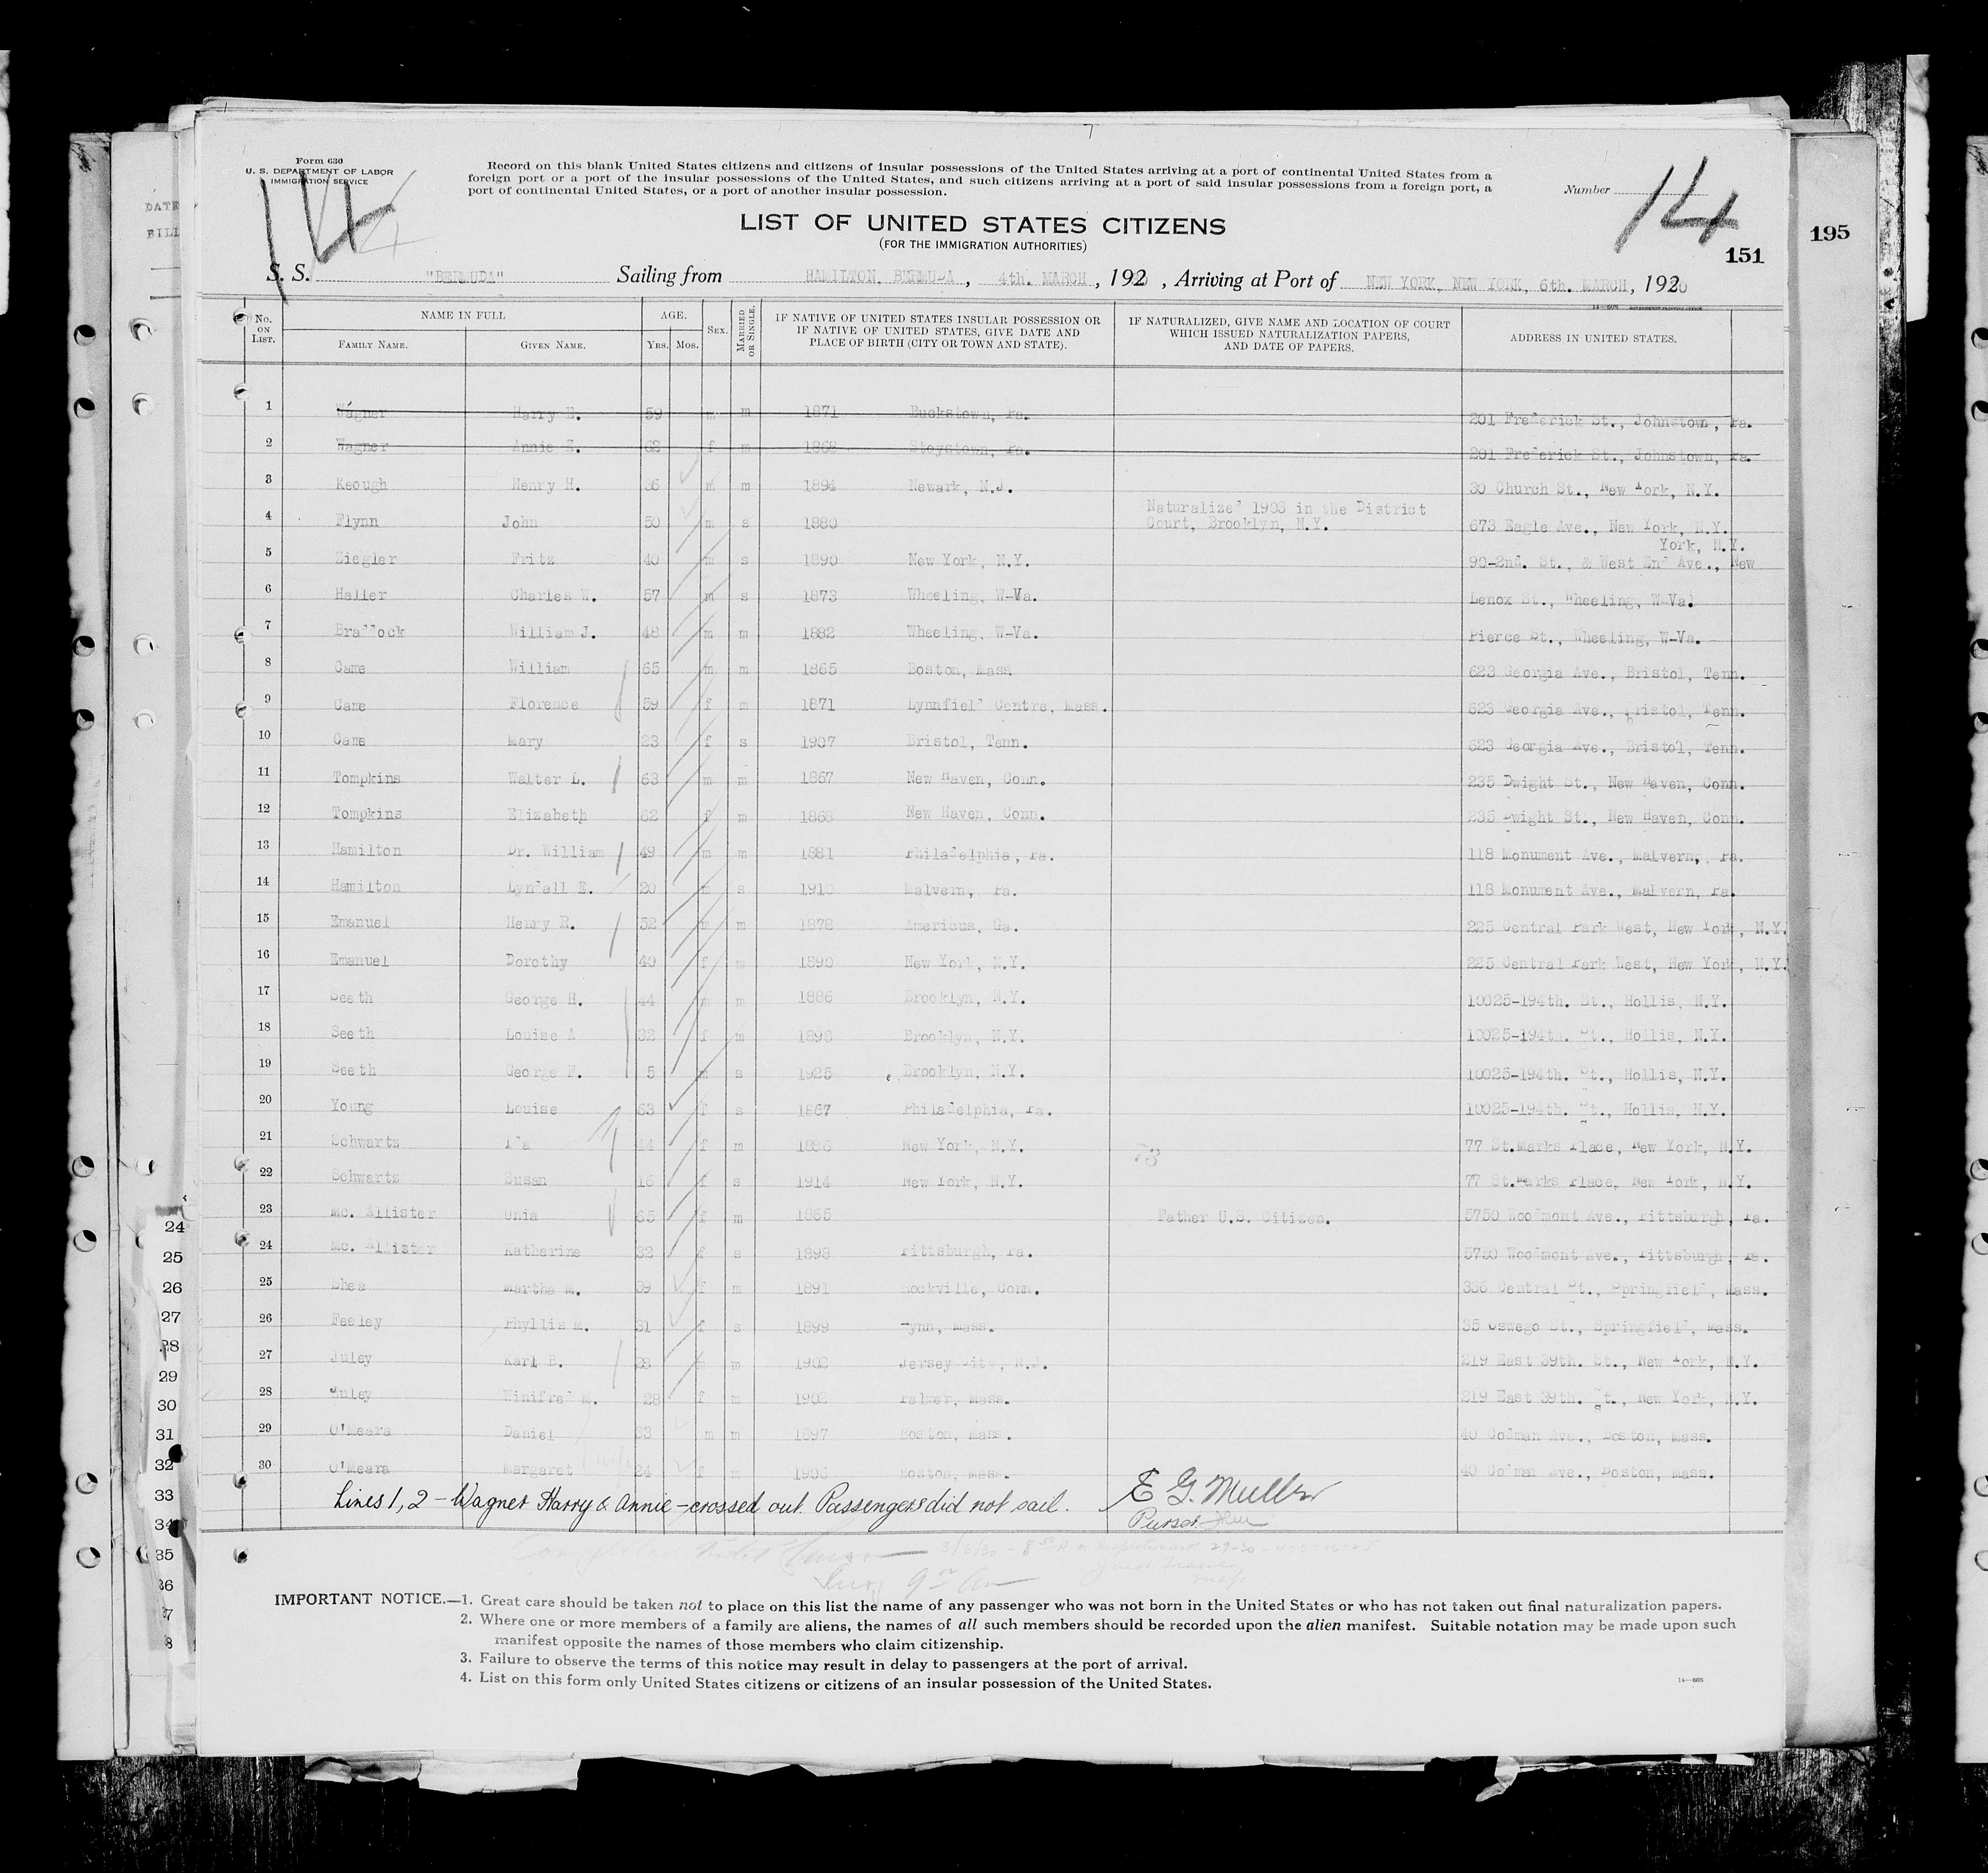 Form 630
U. S. DEPARTMENT OF LABOR
IMMIGRATION SERVICE
Record on this blank United States citizens and citizens of insular possessions of the United States arriving at a port of continental United States from a
foreign port or a port of the insular possessions of the United States, and such citizens arriving at a port of said insular possessions from a foreign port, a
port of continental United States, or a port of another insular possession.
Number
14
14
LIST OF UNITED STATES CITIZENS
(FOR THE IMMIGRATION AUTHORITIES)
151
195
DATE
BILL
S. S. "BERMUDA" Sailing from HAMILTON, BERMUDA, 4th. MARCH, 192 , Arriving at Port of NEW YORK, NEW YORK, 6th. MARCH, 192
No. ON LIST. NAME IN FULL FAMILY NAME. GIVEN NAME. AGE. YRS. MOS. SEX. MARRIED OR SINGLE.
IF NATIVE OF UNITED STATES INSULAR POSSESSION OR
IF NATIVE OF UNITED STATES, GIVE DATE AND
PLACE OF BIRTH (CITY OR TOWN AND STATE).
IF NATURALIZED, GIVE NAME AND LOCATION OF COURT
WHICH ISSUED NATURALIZATION PAPERS,
AND DATE OF PAPERS.
ADDRESS IN UNITED STATES.
1 Wagner Harry E. 59 m m 1871 Buckstown, Pa. 201 Frederick St., Johnstown, Pa.
2 Wagner Annie E. 62 f m 1868 Stoystown, Pa. 201 Frederick St., Johnstown, Pa.
3 Keough Henry H. 36 m m 1894 Newark, N.J. 30 Church St., New York, N.Y.
4 Flynn John 50 m s 1880 Naturalized 1903 in the District
Court, Brooklyn, N.Y. 673 Eagle Ave., New York, N.Y.
York, N.Y.
5 Ziegler Fritz 40 m s 1890 New York, N.Y. 90-2nd. St., & West End Ave., New
6 Haller Charles W. 57 m s 1873 Wheeling, W-Va. Lenox St., Wheeling, W-Va.
7 Braddock William J. 48 m m 1882 Wheeling, W-Va. Pierce St., Wheeling, W-Va.
8 Came William 65 m m 1865 Boston, Mass 623 Georgia Ave., Bristol, Tenn.
9 Came Florence 59 f m 1871 Lynnfield Centre, Mass. 623 Georgia Ave., Bristol, Tenn.
10 Came Mary 23 f s 1907 Bristol, Tenn. 623 Georgia Ave., Bristol, Tenn.
11 Tompkins Walter L. 63 m m 1867 New Haven, Conn. 235 Dwight St., New Haven, Conn.
12 Tompkins Elizabeth 62 f m 1868 New Haven, Conn. 235 Dwight St., New Haven, Conn.
13 Hamilton Dr. William 49 m m 1881 Philadelphia, Pa. 118 Monument Ave., Malvern, Pa.
14 Hamilton Lyndall E. 20 m s 1910 Malvern, Pa. 118 Monument Ave., Malvern, Pa.
15 Emanuel Henry R. 52 m m 1878 Americus, Ga. 225 Central Park West, New York, N.Y.
16 Emanuel Dorothy 40 f m 1890 New York, N.Y. 225 Central Park West, New York, N.Y.
17 Seeth George H. 44 m m 1886 Brooklyn, N.Y. 10025-194th. St., Hollis, N.Y.
18 Seeth Louise A 32 f m 1898 Brooklyn, N.Y. 10025-194th. St., Hollis, N.Y.
19 Seeth George F. 5 m s 1925 Brooklyn, N.Y. 10025-194th. St., Hollis, N.Y.
20 Young Louise 63 f s 1867 Philadelphia, Pa. 10025-194th. St., Hollis, N.Y.
21 Schwartz Ida 44 f m 1886 New York, N.Y. 77 St.Marks Place, New York, N.Y.
22 Schwartz Susan 16 f s 1914 New York, N.Y. 77 St.Marks Place, New York, N.Y.
23 Mc. Allister Unia 65 f m 1865 Father U.S. Citizen. 5750 Woodmont Ave., Pittsburgh, Pa.
24 Mc. Allister Katherine 32 f s 1898 Pittsburgh, Pa. 5750 Woodmont Ave., Pittsburgh, Pa.
25 Shea Martha M. 39 f m 1891 Rockville, Conn. 336 Central St., Springfield, Mass.
26 Feeley Phyllis M. 31 f s 1899 Lynn, Mass. 35 Oswego St., Springfield, Mass.
27 Juley Karl B. 28 m m 1902 Jersey City, N.J. 219 East 39th. St., New York, N.Y.
28 Juley Winifred M. 28 f m 1902 Palmer, Mass. 219 East 39th. St., New York, N.Y.
29 O'Meara Daniel 33 m m 1897 Boston, Mass. 40 Colman Ave., Boston, Mass.
30 O'Meara Margaret 24 f m 1906 Boston, Mass. 40 Colman Ave., Boston, Mass.
Lines 1, 2 - Wagner Harry & Annie - crossed out. Passengers did not sail. E G. Muller
Purser
IMPORTANT NOTICE.—1. Great care should be taken not to place on this list the name of any passenger who was not born in the United States or who has not taken out final naturalization papers.
2. Where one or more members of a family are aliens, the names of all such members should be recorded upon the alien manifest. Suitable notation may be made upon such
manifest opposite the names of those members who claim citizenship.
3. Failure to observe the terms of this notice may result in delay to passengers at the port of arrival.
4. List on this form only United States citizens or citizens of an insular possession of the United States.
14—608
24
25
26
27
28
29
30
31
32
33
34
35
36